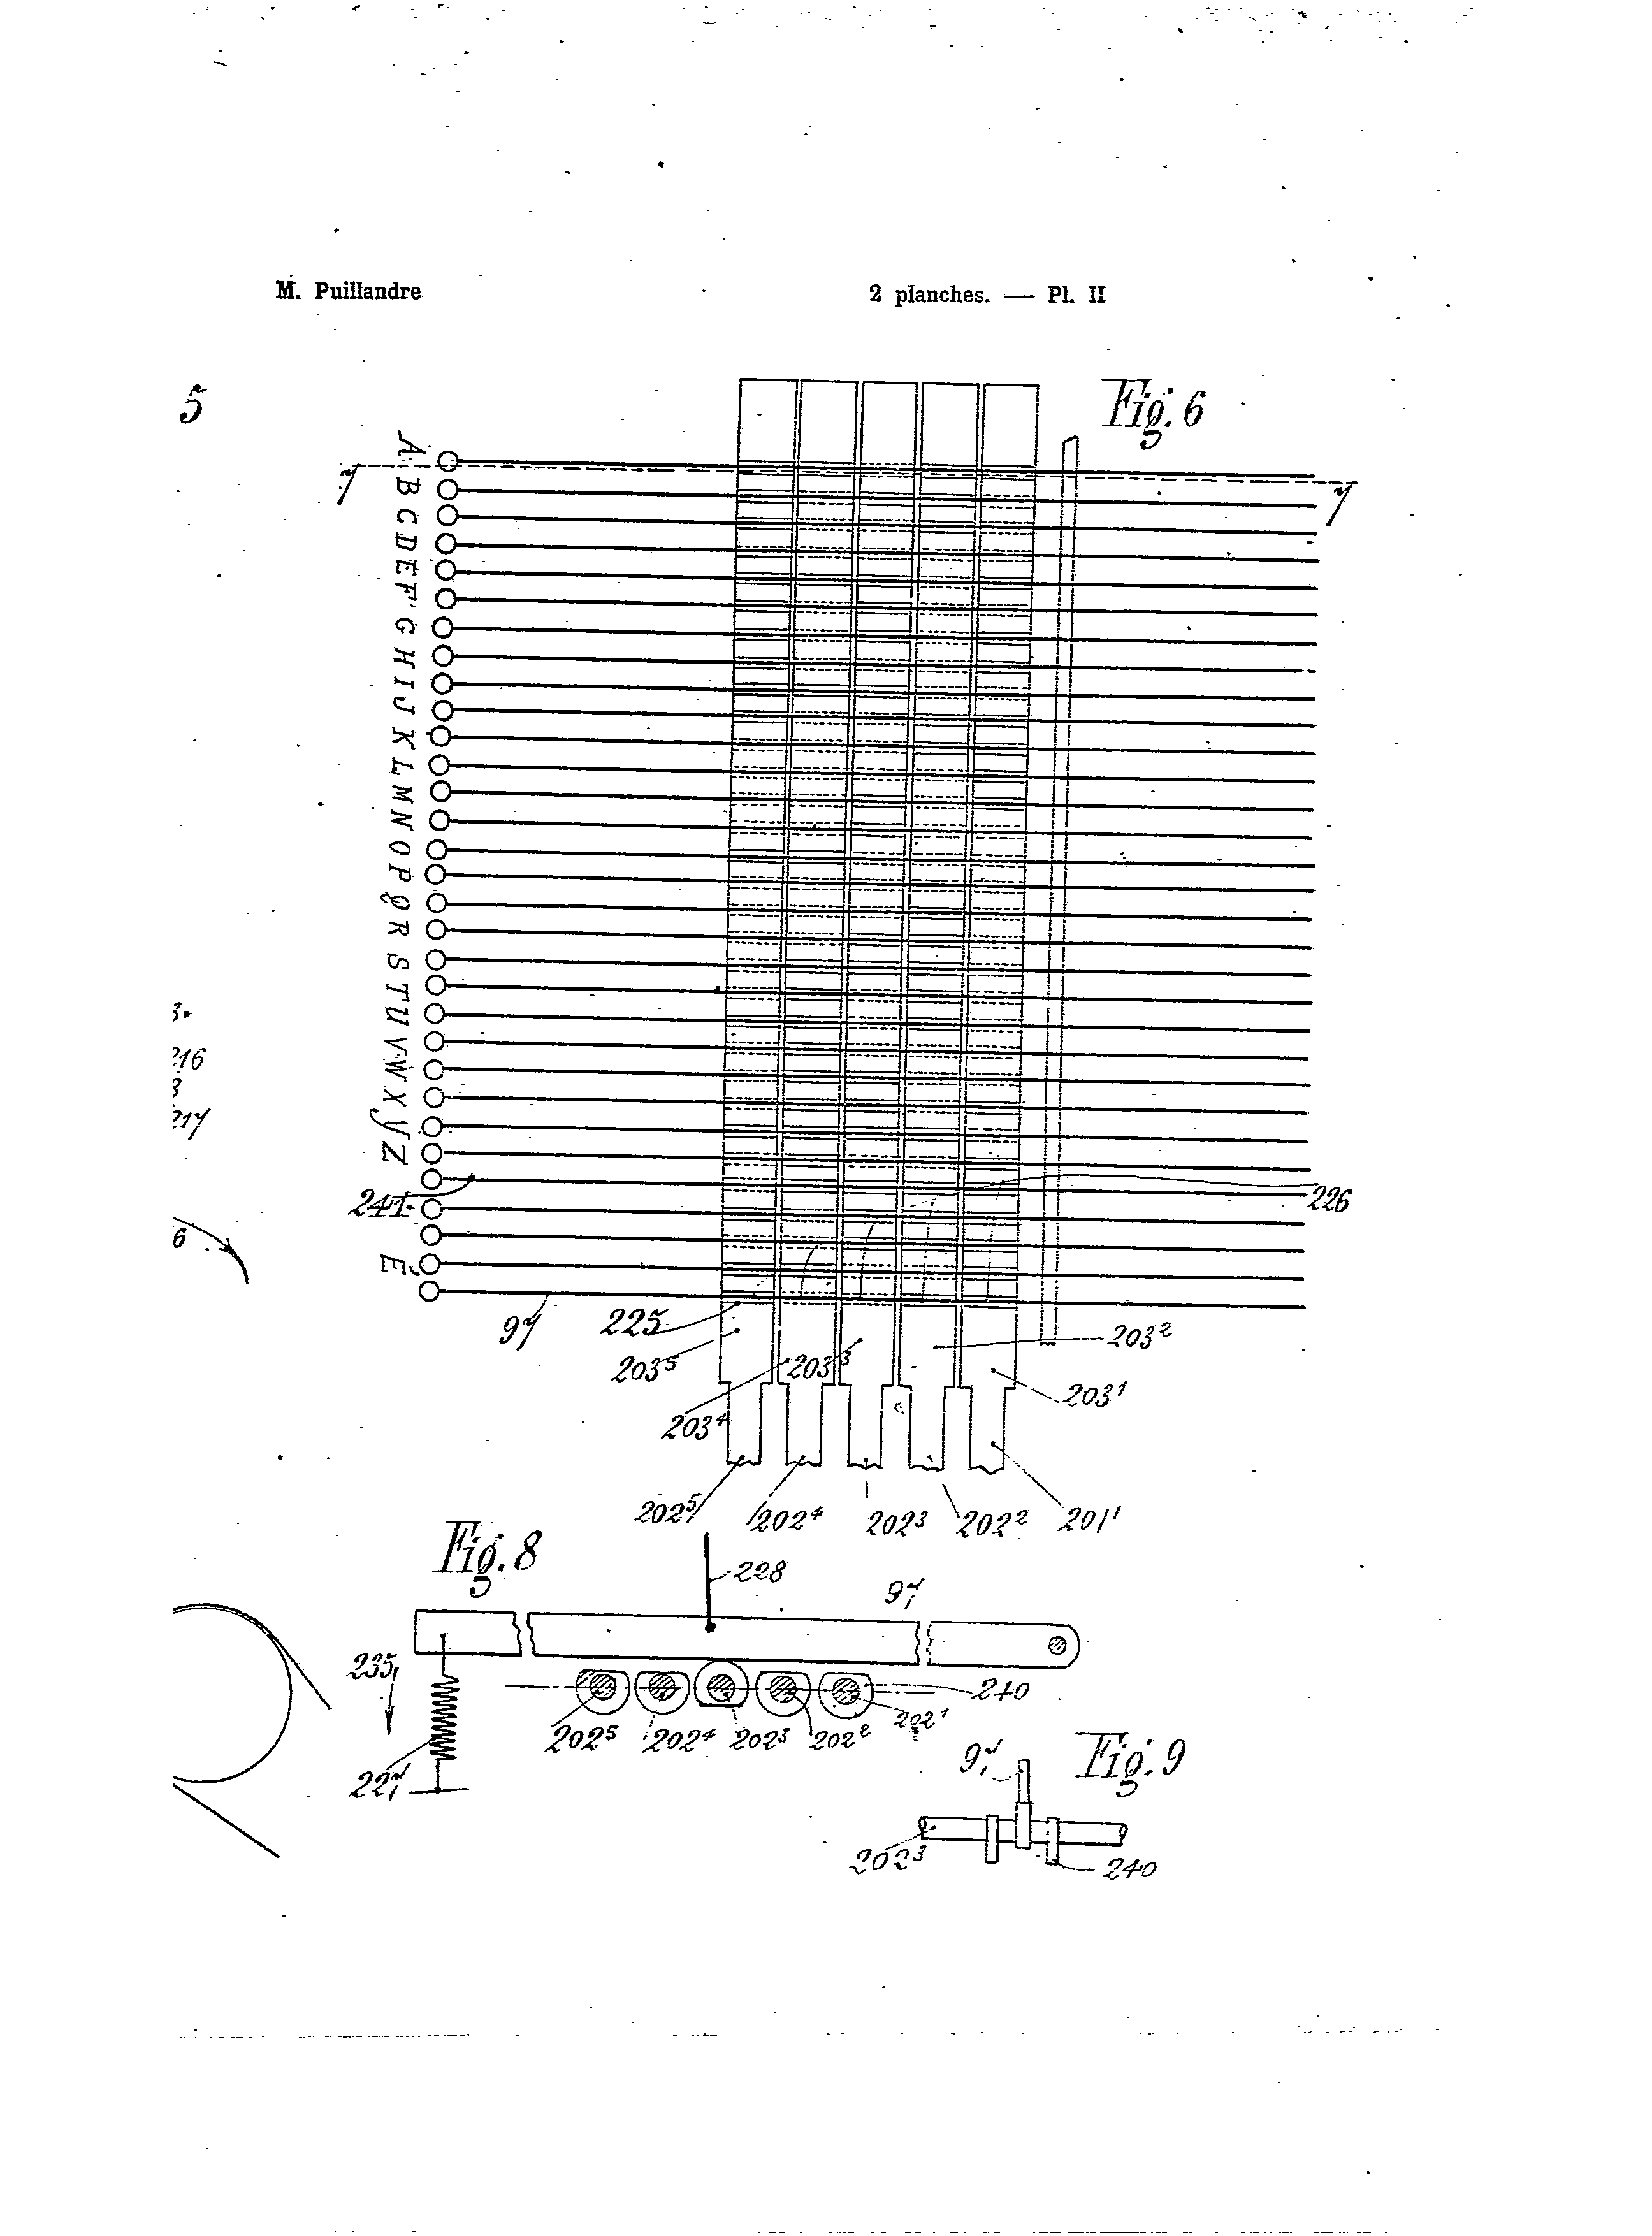 M. Puillandre
2 planches. — Pl. II
5
Fig. 6
A
7
7
B
C
D
E
F
G
H
I
J
K
L
M
N
O
P
Q
R
S
T
U
V
W
X
Y
Z
216
217
241
226
6
É
97
225
203⁵
203³
203²
203¹
203⁴
202⁵
202⁴
202³
202²
201¹
Fig. 8
228
97
235
240
202⁵
202⁴
202³
202²
202¹
227
Fig. 9
97
202³
240